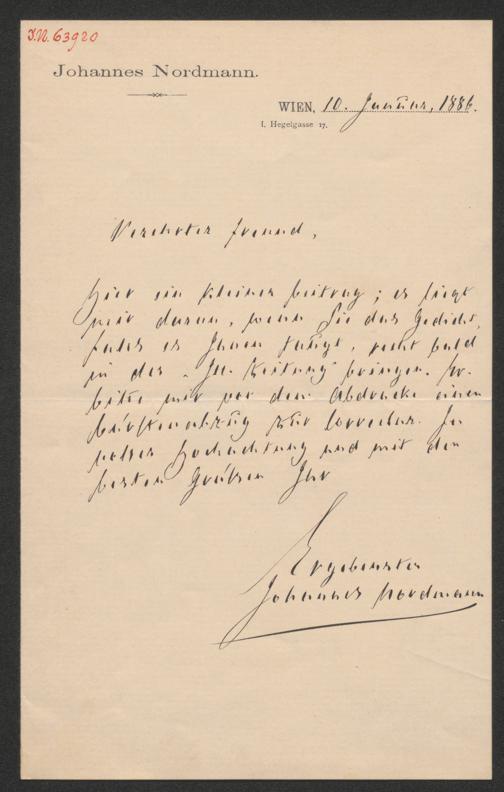 I.N. 63920
Johannes Nordmann.
WIEN, 10. Januar, 1886.
I. Hegelgasse 17.
Verehrter Freund,
hier ein kleiner Beitrag; es liegt
mir daran, wenn Sie das Gedicht,
falls es Ihnen taugt, recht bald
in der „Ill. Zeitung“ bringen. Er-
bitte mir vor dem Abdrucke einen
Bürstenabzug zur Correctur. In
voller Hochachtung und mit den
besten Grüßen Ihr
Ergebenster
Johannes Nordmann